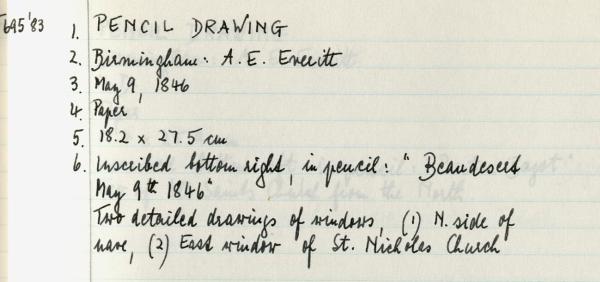 695'83
1. PENCIL DRAWING
2. Birmingham: A. E. Everitt
3. May 9, 1846
4. Paper
5. 18.2 x 27.5 cm
6. Inscribed bottom right, in pencil: "Beaudesert
May 9th 1846"
Two detailed drawings of windows, (1) N. side of
nave, (2) East window of St. Nicholas Church